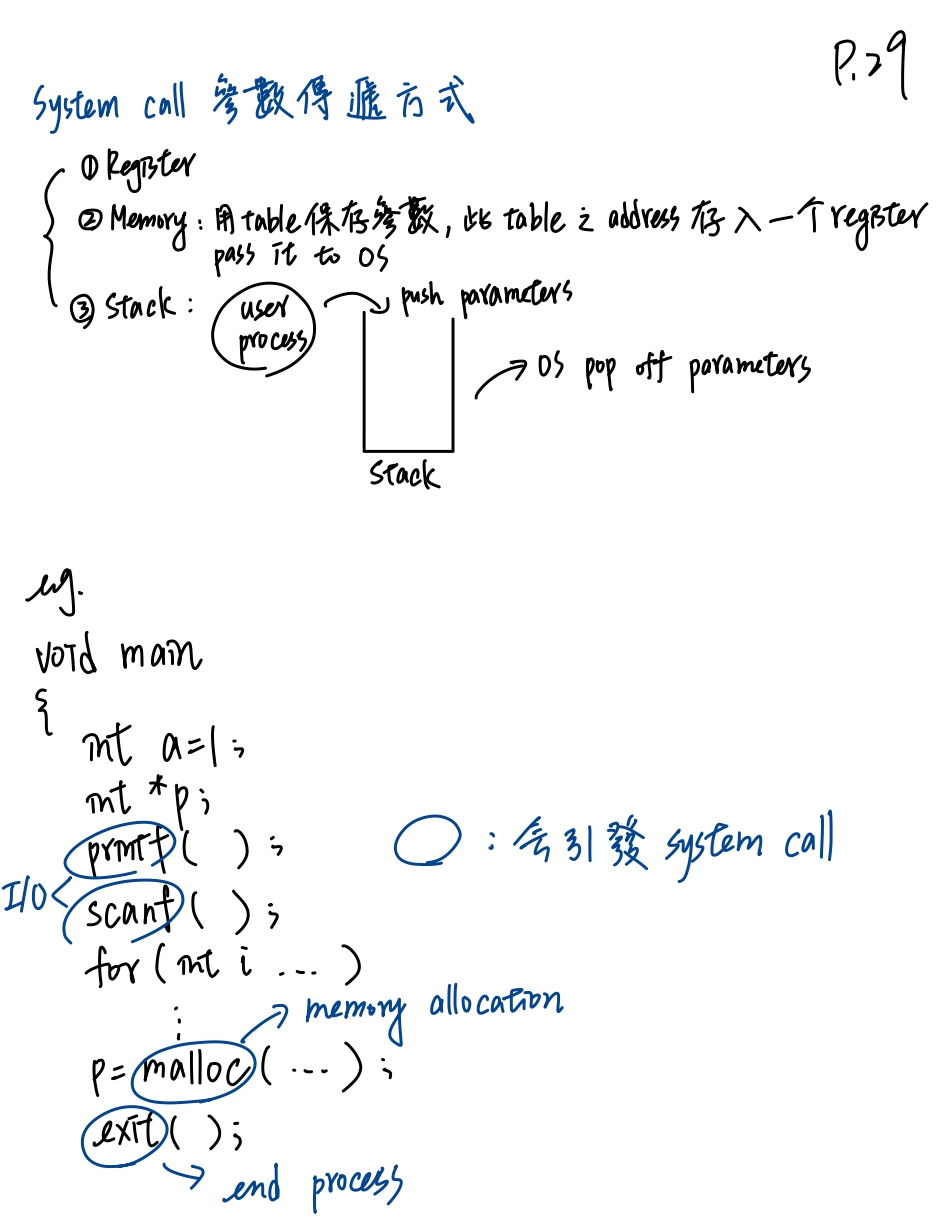 P.29
System call 參數傳遞方式
① Register
② Memory : 用 table 保存參數, 此 table 之 address 存入一个 register
pass it to OS
③ Stack : user process push parameters
OS pop off parameters
Stack
eg.
void main
{
int a=1;
int *p;
printf( );
○ : 会引發 system call
I/O
scanf( );
for (int i ... )
⋮
memory allocation
p= malloc( ... );
exit( );
end process